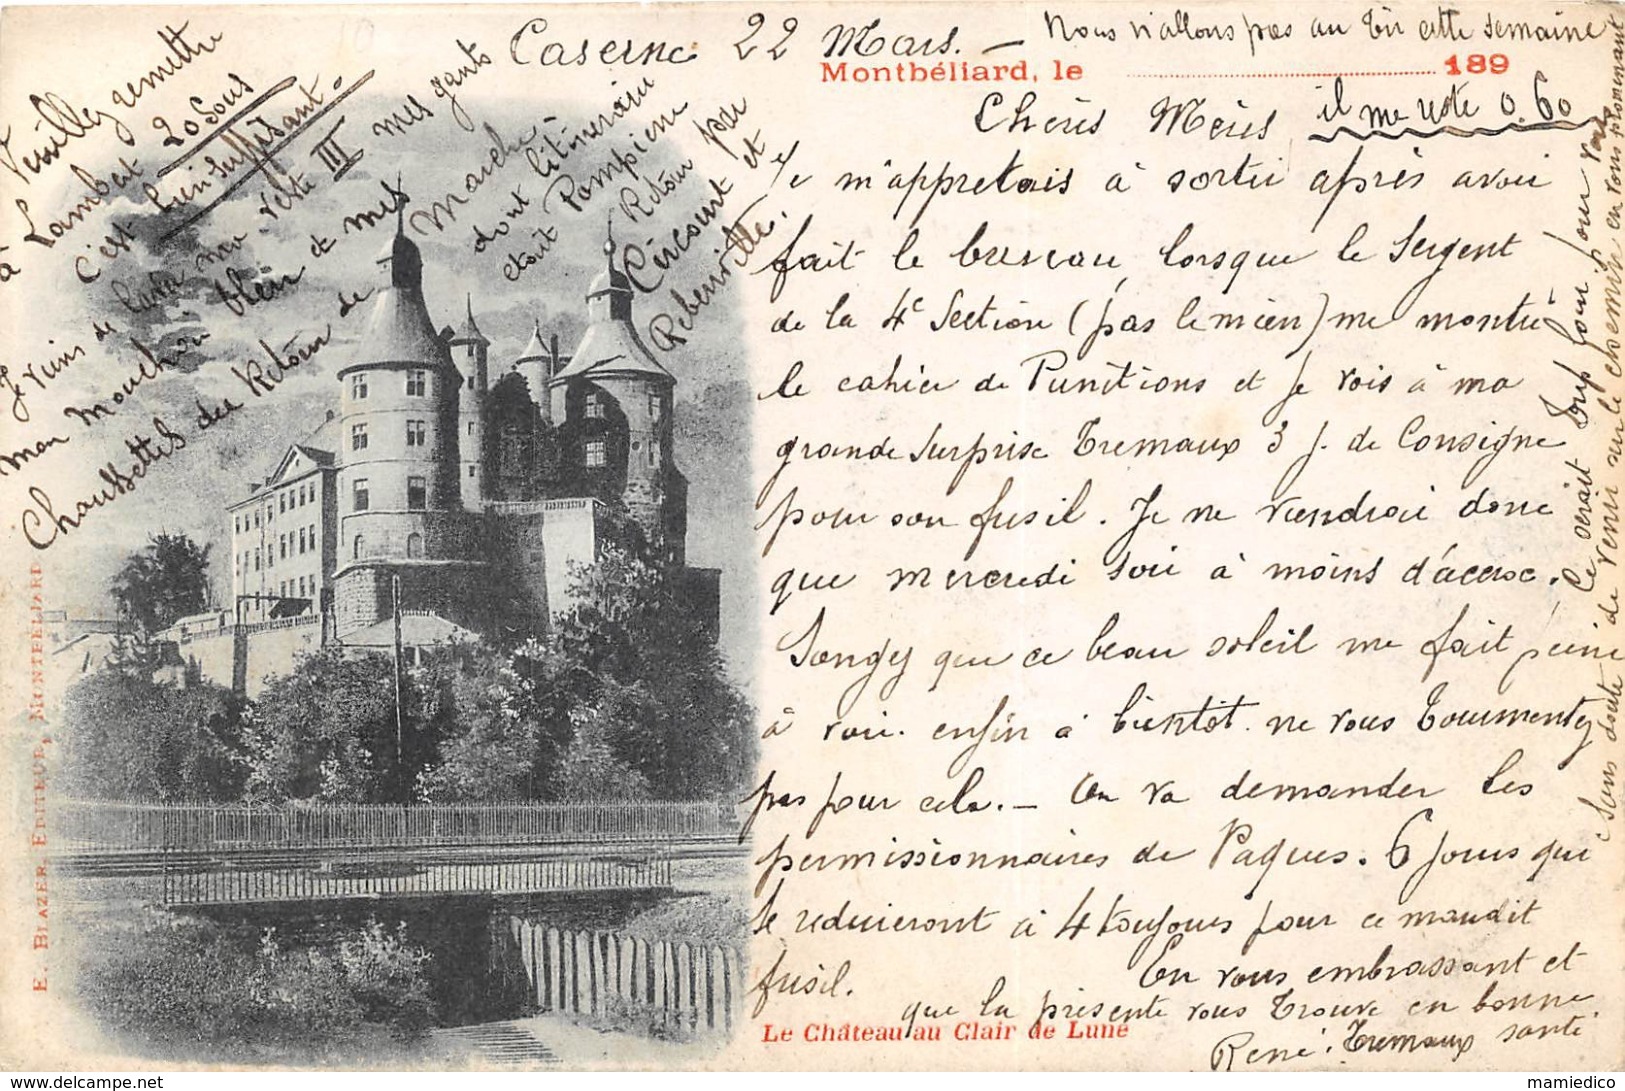 Caserne 22 Mars. — Nous n'allons pas au Tir cette semaine
Montbéliard, le 189
Chères Mères il me reste 0.60
Je m'appretais à sortir après avoir
fait le bureau, lorsque le Sergent
de la 4e Section (pas le mien) me montre
le cahier de Punitions et je vois à ma
grande surprise Tremaux 3 j. de Consigne
pour son fusil. Je ne viendrai donc
que mercredi soir à moins d'accroc.
Songez que ce beau soleil me fait peine
à voir. enfin à bientôt. ne vous Tourmentez
pas pour cela. — On va demander les
permissionnaires de Paques. 6 jours qui
se reduieront à 4 toujours pour ce maudit
fusil. En vous embrassant et
que la présente vous Trouve en bonne
santé
René. Tremaux
Ce serait Trop loin pour vous
Sans doute de venir sur le chemin en vous promenant
Veuillez remettre
à Lambert 20 Sous
c'est bien suffisant.
Je viens de laver ma veste III mes gants
mon mouchoir bleu et mes
Chaussettes au Retour de Marche
dont l'itinéraire
était Pompierre
Retour par
Circourt et
Rebeuville.
E. Blazer, Editeur, Montbéliard
Le Château au Clair de Lune
mamiedico